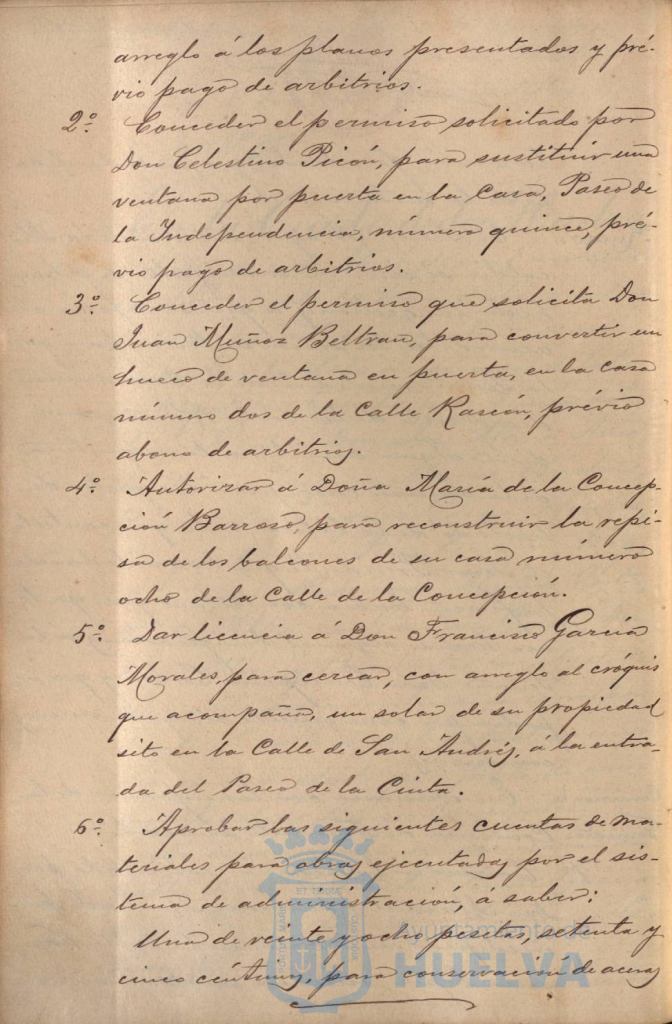 arreglo á los planos presentados y pré-
vio pago de arbitrios.
2º Conceder el permiso solicitado por
Don Celestino Picón, para sustituir una
ventana por puerta en la Casa, Paseo de
la Independencia, número quince, pré-
vio pago de arbitrios.
3º Conceder el permiso que solicita Don
Juan Muñoz Beltran, para convertir un
hueco de ventana en puerta, en la casa
número dos de la Calle Rascón, prévio
abono de arbitrios.
4º Autorizar á Doña María de la Concep-
ción Barroso, para reconstruir la repi-
sa de los balcones de su casa número
ocho de la Calle de la Concepción.
5º Dar licencia á Don Francisco García
Morales, para cercar, con arreglo al cróquis
que acompaña, un solar de su propiedad
sito en la Calle de San Andrés, á la entra-
da del Paseo de la Cinta.
6º Aprobar las siguientes cuentas de ma-
teriales para obras ejecutadas por el sis-
tema de administración, á saber:
Una de veinte y ocho pesetas, setenta y
cinco céntimos, para conservación de aceras
Ayuntamiento
HUELVA